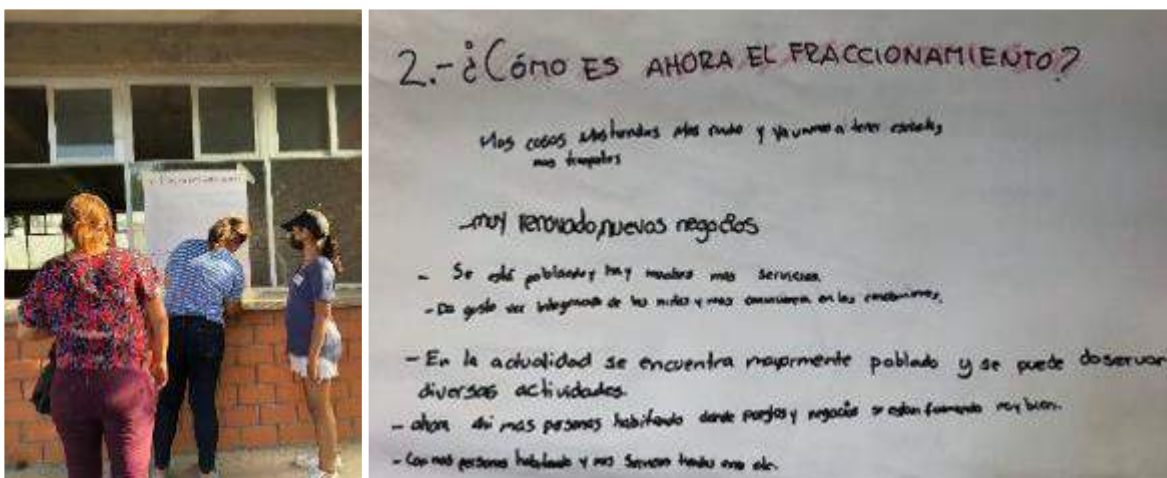 2.- ¿Cómo ES AHORA EL FRACCIONAMIENTO?
Mas casas Mas tiendas Mas ruido y ya vamos a tener escuelas,
mas
muy renovado, nuevos negocios
- Se está poblando y hay muchos mas servicios.
- Da gusto ver de los niños y mas en las
- En la actualidad se encuentra mayormente poblado y se puede observar
diversas actividades.
- ahora mas personas habitando donde y negocios se estan formando muy bien.
- Con mas personas habitando y mas servicios